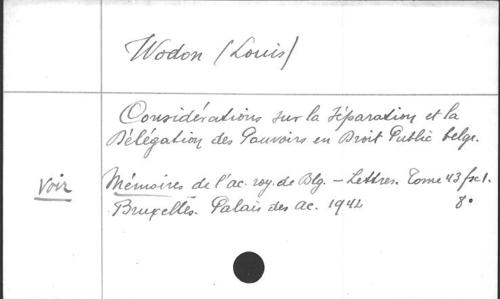 Wodon (Louis)
Considérations sur la séparation et la
Délégation des Pouvoirs en Droit Public belge.
Voir
Mémoires de l'ac. roy. de Blg. - Lettres. Tome 43 fsc 1.
Bruxelles. Palais des ac. 1942 8°